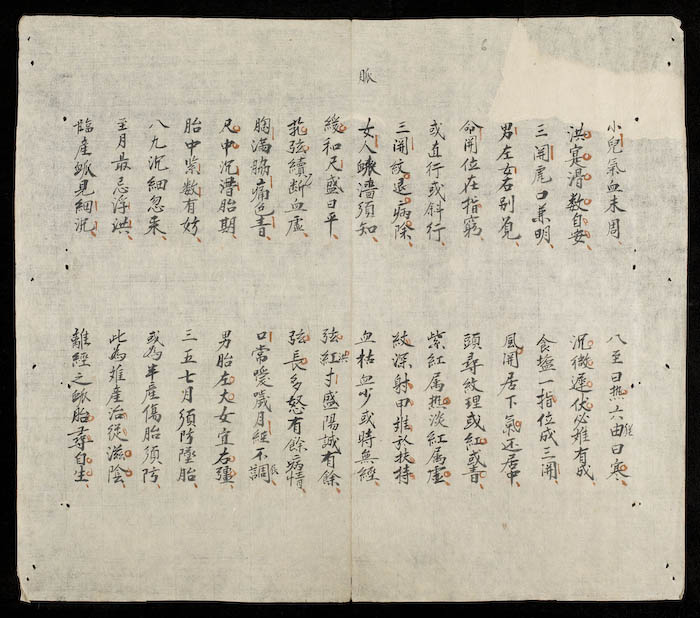 6
脈
小兒氣血未周
八至曰熱六由曰寒
洪寔滑数自安
沉微遲伏必难有成
三開尾口兼明
食搤一指位成三開
男左女右別覔
風開居下氣还居中
命開位在指窮
頭尋紋理或紅或青
或直行或斜行
紫紅属热淡紅属虚
三開紋退病除
紋深射甲难於扶持
女人脉濇須知
血枯血少或時無經
緩和尺盛曰平
弦紅寸盛陽誠有餘
洪
芤弦續断血虚
弦長多怒有餘病情
胸滿脇痛色青
口常噯噦月經不調
尺中沉濇胎期
男胎左大女宜右彊
胎中紧数有妨
三五七月須防墮胎
八九沉細忽来
或為半産傷胎須防
至月最忌浮洪
此為难産治從滋陰
臨産脉見細沉
離經之脉胎尋自生